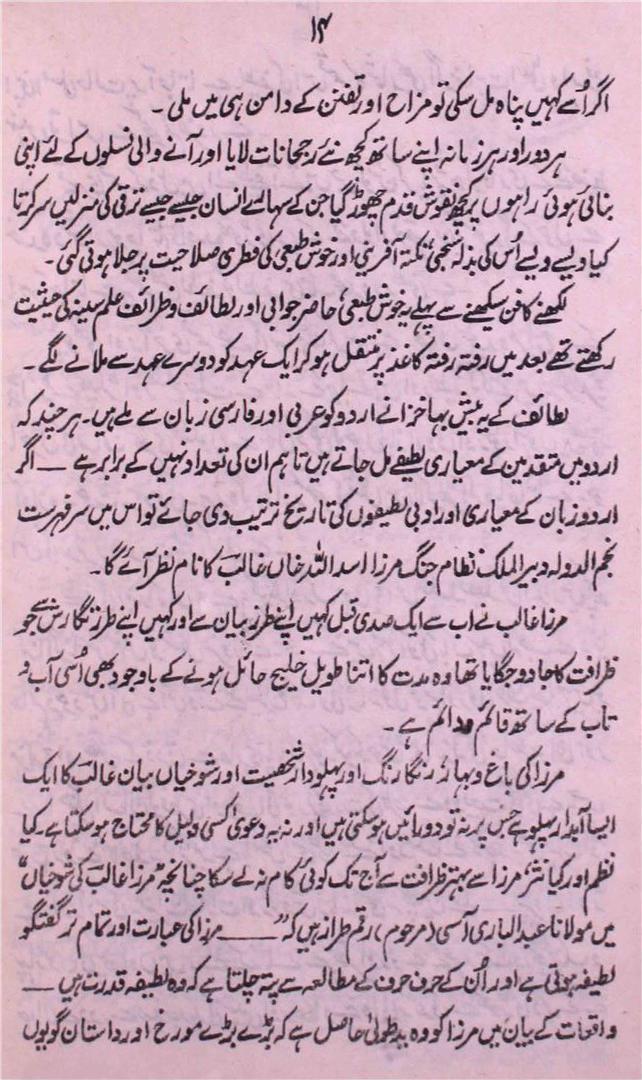 ۱۴
اگر اُسے کہیں پناہ مل سکی تو مزاح اور تفنن کے دامن ہی میں ملی ۔
ہر دور اور ہر زمانہ اپنے ساتھ کچھ نئے رجحانات لایا اور آنے والی نسلوں کے لئے اپنی
بنائی ہوئی راہوں پر کچھ نقوش قدم چھوڑ گیا جن کے سہارے انسان جیسے جیسے ترقی کی منزلیں سر کرتا
گیا ویسے ویسے اُس کی بذلہ سنجی، نکتہ آفرینی اور خوش طبعی کی فطری صلاحیت پر جلا ہوتی گئی ۔
لکھنے کا فن سیکھنے سے پہلے یہ خوش طبعی، حاضر جوابی اور لطائف و ظرائف علم سینہ کی حیثیت
رکھتے تھے بعد میں رفتہ رفتہ کاغذ پر منتقل ہو کر ایک عہد کو دوسرے عہد سے ملانے لگے ۔
لطائف کے یہ بیش بہا خزانے اردو کو عربی اور فارسی زبان سے ملے ہیں۔ ہر چند کہ
اردو میں متقدمین کے معیاری لطیفے مل جاتے ہیں تاہم ان کی تعداد نہیں کے برابر ہے — اگر
اردو زبان کے معیاری اور ادبی لطیفوں کی تاریخ ترتیب دی جائے تو اس میں سر فہرست
نجم الدولہ دبیر الملک نظام جنگ مرزا اسد اللہ خاں غالب کا نام نظر آئے گا۔
مرزا غالب نے اب سے ایک صدی قبل کہیں اپنے طرز بیان سے اور کہیں اپنے طرز نگارش سے جو
ظرافت کا جادو جگایا تھا وہ مدت کا اتنا طویل خلیج حائل ہونے کے باوجود بھی اُسی آب و
تاب کے ساتھ قائم و دائم ہے ۔
مرزا کی باغ و بہار، رنگا رنگ اور پہلو دار شخصیت اور شوخیاں بیان غالب کا ایک
ایسا آبدار پہلو ہے جس پر نہ تو دو رائیں ہو سکتی ہیں اور نہ یہ دعویٰ کسی دلیل کا محتاج ہو سکتا ہے۔ کیا
نظم اور کیا نثر، مرزا سے بہتر ظرافت سے آج تک کوئی کام نہ لے سکا چنانچہ "مرزا غالب کی شوخیاں"
میں مولانا عبد الباری آسی (مرحوم) رقم طراز ہیں کہ "—— مرزا کی عبارت اور تمام تر گفتگو
لطیفہ ہوتی ہے اور اُن کے حرف حرف کے مطالعہ سے پتہ چلتا ہے کہ وہ لطیفہ قدرت ہیں —
واقعات کے بیان میں مرزا کو وہ ید طولیٰ حاصل ہے کہ بڑے بڑے مورخ اور داستان گویوں